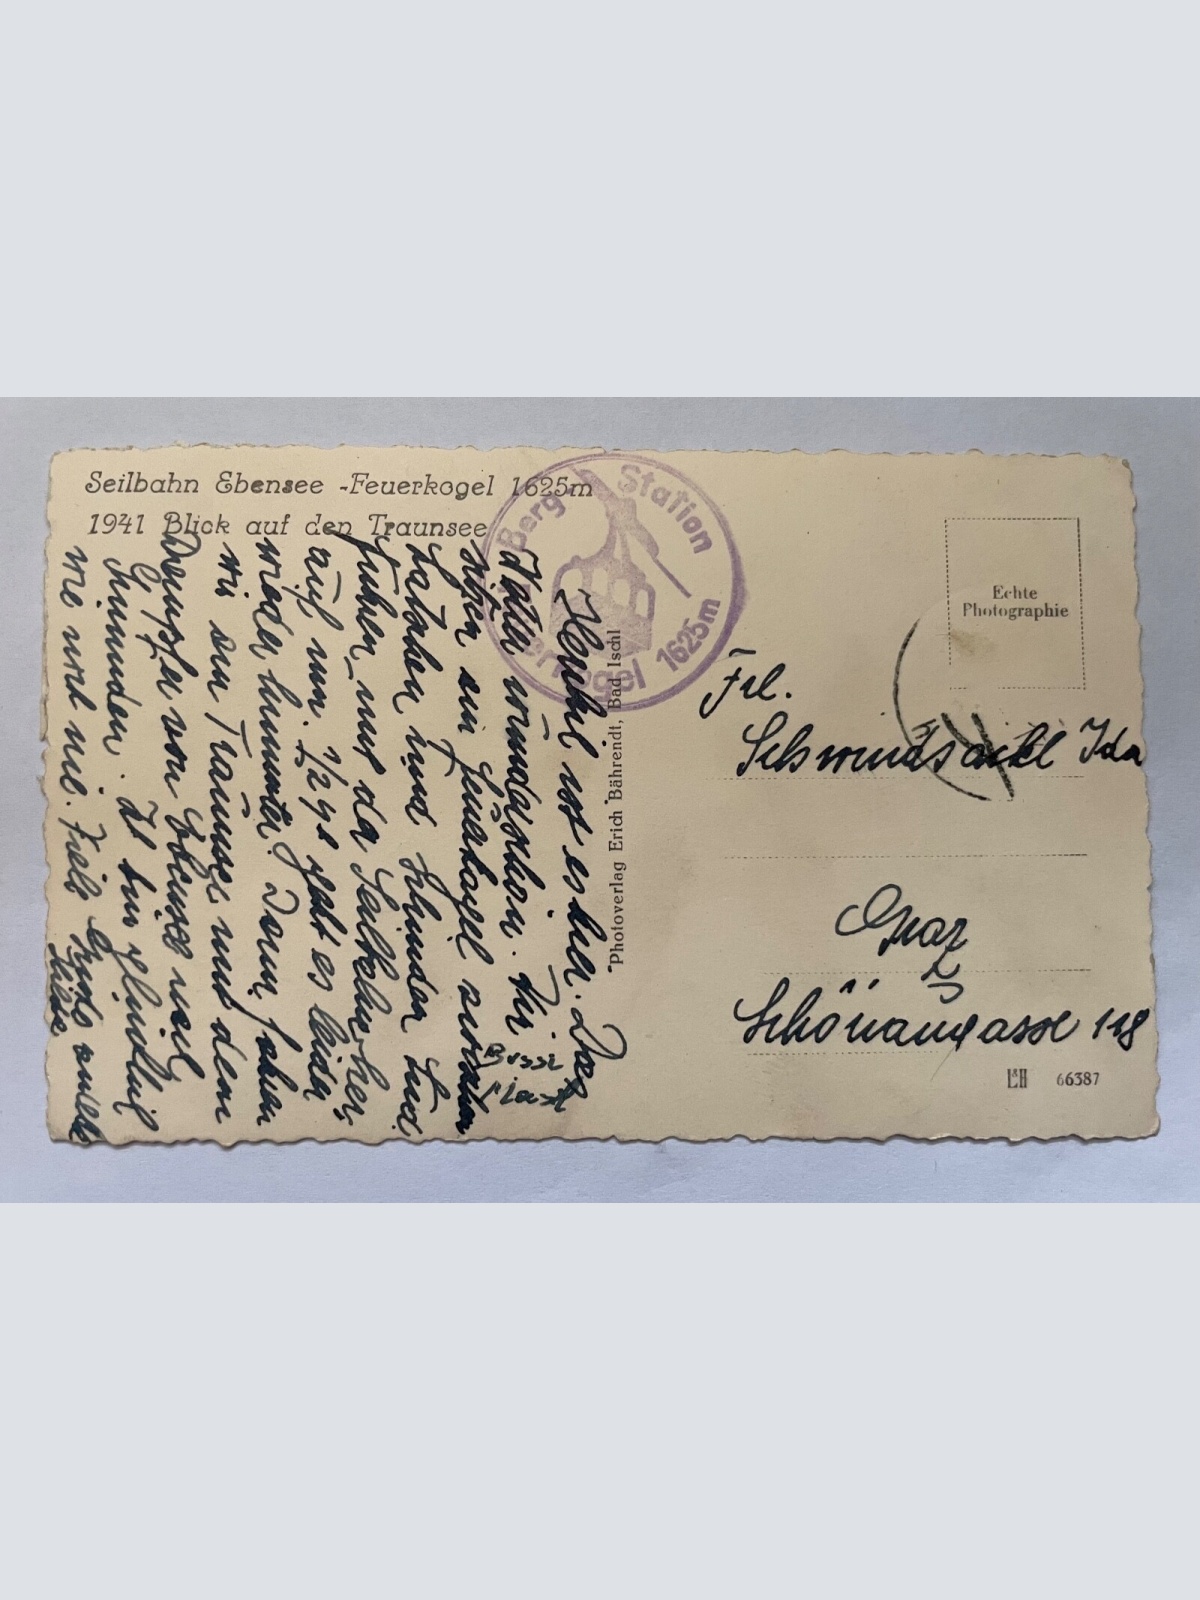 Seilbahn Ebensee -Feuerkogel 1625m
1941 Blick auf den Traunsee
Berg Station
Feuerkogel 1625m
Echte
Photographie
Photoverlag Erich Bährendt, Bad Ischl
Frl.
Ida
Graz
Schönaugasse 118
66387
ist es hier. Das
Wetter wunderschön. Wir
sitzen am Feuerkogel zwischen
Latschen und
fuhren mit der Seilbahn
auf um 1/2 geht es leider
wieder hinunter. Dann fahren
wir am Traunsee mit dem
Dampfer von Ebensee nach
Gmunden. Ich bin glücklich
wie noch nie. Viele
Bussi